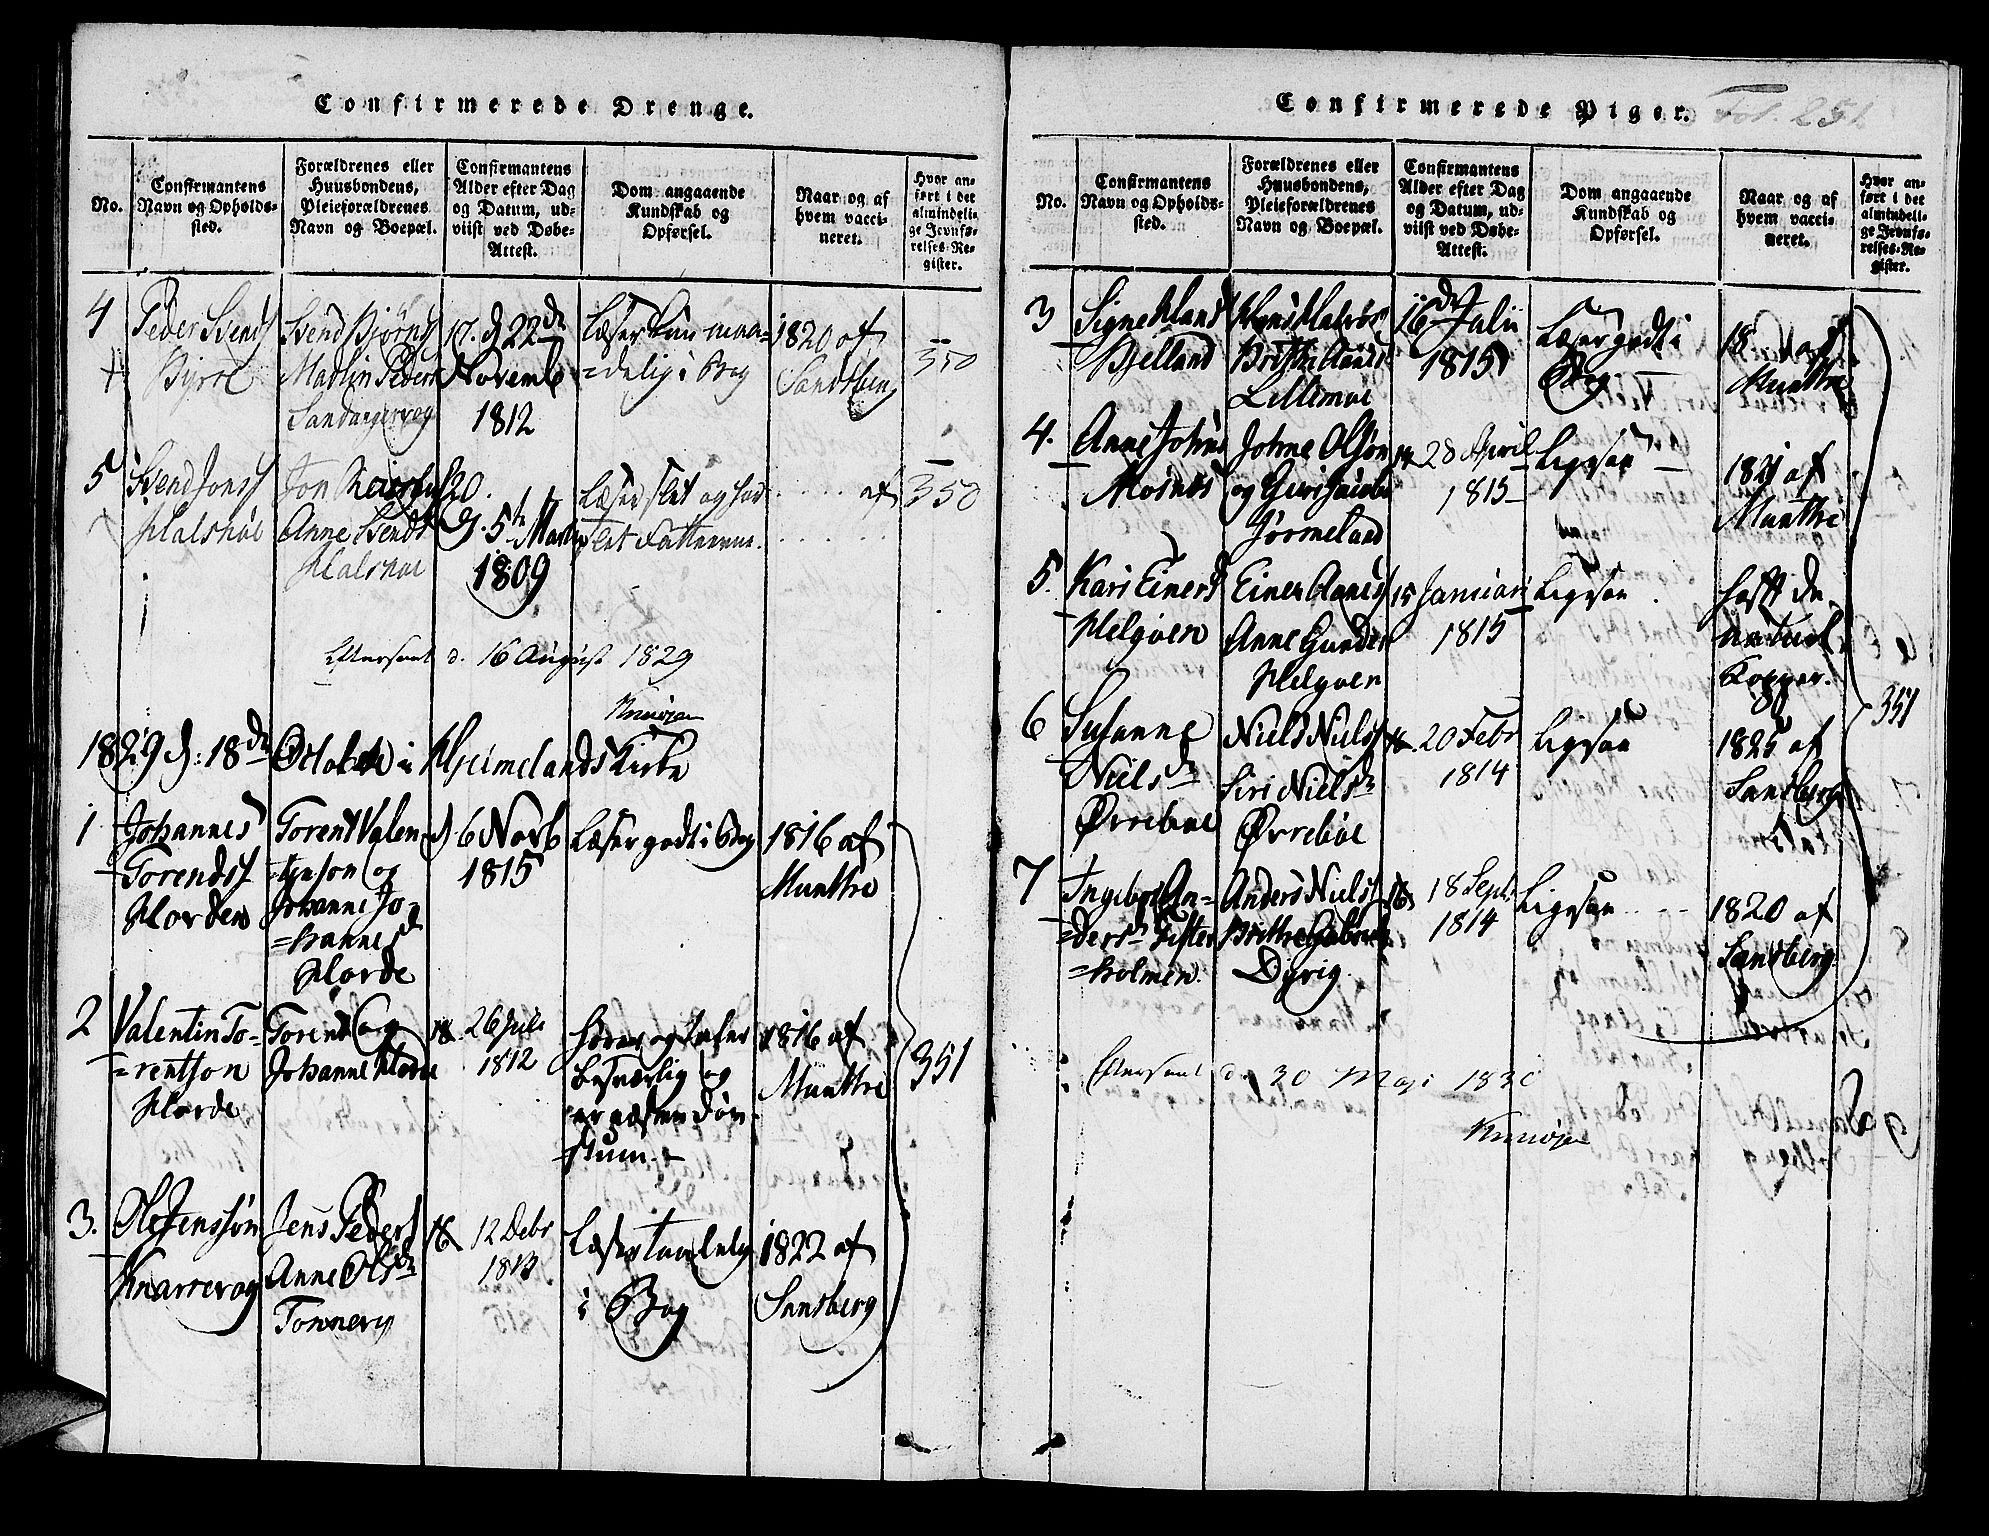 Confirmerede Drenge.
No.
Confirmantens
Navn og Opholds-
sted.
Forældrenes eller
Huusbondens,
Pleieforældrenes
Navn og Boepæl.
Confirmantens
Alder efter Dag
og Datum, ud-
viist ved Døbe-
Attest.
Dom angaaende
Kundskab og
Opførsel.
Naar og af
hvem vacci-
neret.
Hvor an-
ført i det
almindeli-
ge Jevnfø-
relses-Re-
gister.
4
Peder Svends
Svend Bjørns
Madlin Peders
17. d 22de
Novemb
1812
Læser kun maa-
=delig i Bog
1820 af
Sandsberg
350
5
Svend Jonss
Halshøe
Jon
Anne Svends
Halshøe
20.
d. 5te Martii
1809
Læser slet og har
slet
af
350
Efterseet d. 16 August 1829
1829 d: 18de October i Hjelmelands Kirke
1
Johannes
Torendss
Horden
Torend Valen
=tinson og
Johanne Jo=
=hannesd
Horde
6 Novb
1815
Læser godt i Bog
1816 af
Munthe
2
Valentin To=
=rentson
Horde
Torend og
Johanne Horde
18. 26 Juli
1812
hører og taler
besværlig og
er næsten døv-
stum.-
1816 af
Munthe
351
3.
Ole Jenssøn
Knarrevog
Jens Peders
Anne Olsdr
16 12 Debr
1813
Læser taalelig
i Bog
1822 af
Sandsberg
Confirmerede Piger.
Fol. 251
No.
Confirmantens
Navn og Opholds-
sted.
Forældrenes eller
Huusbondens,
Pleieforældrenes
Navn og Boepæl.
Confirmantens
Alder efter Dag
og Datum, ud-
viist ved Døbe-
Attest.
Dom angaaende
Kundskab og
Opførsel.
Naar og af
hvem vacci-
neret.
Hvor an-
ført i det
almindeli-
ge Jevnfø-
relses-Re-
gister.
3
Signe
Bjelland
Lillemoe
16de Julii
1815
Læser godt i
Bog.
18 af
Munthe
4.
Anne Johns
Moines
Johne Olsøn
og Guri Jacobs
Jørmeland
14 28 April
1815
Ligesaa
1821 af
Munthe
5.
Kari Einers
Helgøen
Einer Aanes
Anne Gunder
Helgøen
15 Januari
1815
Ligesaa.
haft de
naturl.
Kopper.
6
Susanne
Nielsdr
Ørreboe
Niels Nielss
Siri Nielsdr
Ørreboe
20 Febr
1814
Ligesaa
1825 af
Sandsberg
351
7
Ingebor An=
=dersdr Fister
=holmen.
Anders Nielss
Brithe
18 Septr
1814
Ligesaa
1820 af
Sandsberg
Efterseet d. 30 Maji 1830